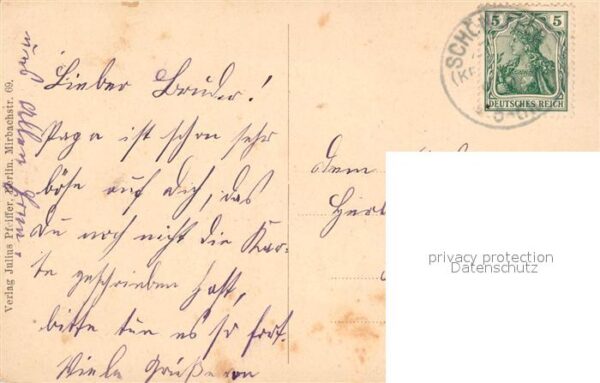 Lieber Bruder!
Papa ist schon sehr
böse auf dich, das
Du noch nicht die Kar-
te geschrieben hast,
bitte tun es so fort.
Viele Grüße von
Verlag Julius Pfeiffer, Berlin, Mirbachstr. 69.
SCHÖ
5 5
DEUTSCHES REICH
dem
Her
privacy protection
Datenschutz